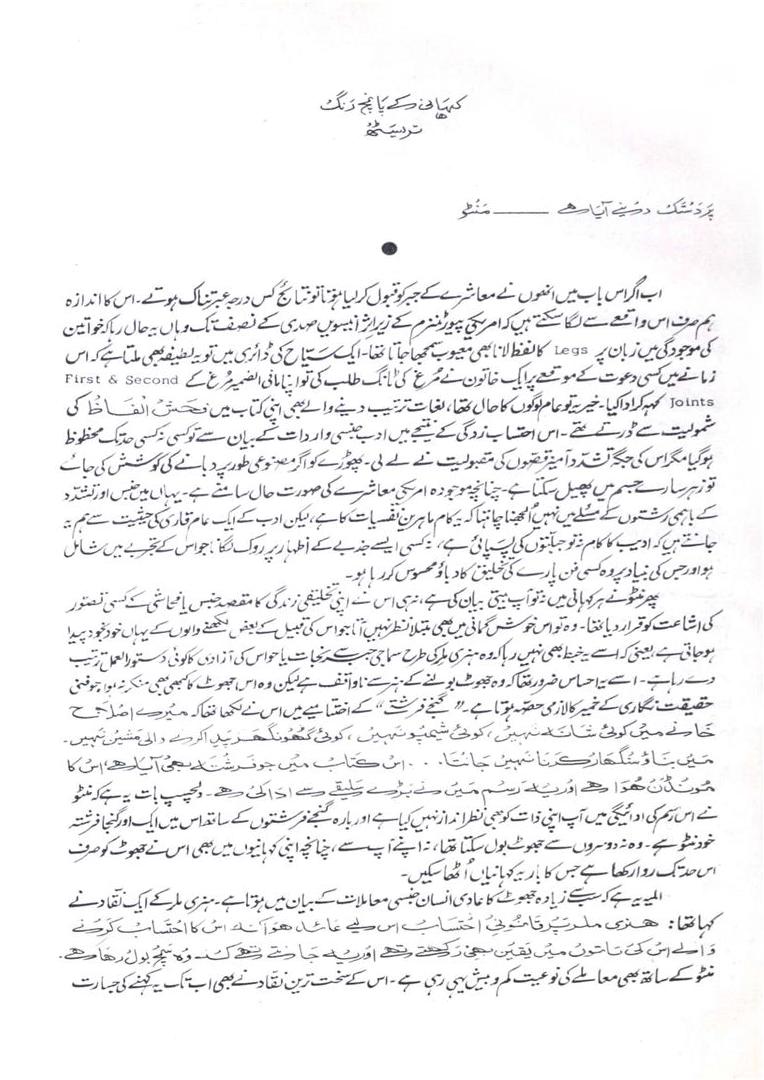 کہانی کے پانچ رنگ
تریسٹھ
پر دستک دینے آیا ہے ــــــ منٹو
اب اگر اس باب میں انھوں نے معاشرے کے جبر کو قبول کر لیا ہوتا تو نتائج کس درجہ عبرتناک ہوتے۔ اس کا اندازہ
ہم صرف اس واقعے سے لگا سکتے ہیں کہ امریکی پیورٹنزم کے زیرِ اثر انیسویں صدی کے نصف تک وہاں یہ حال رہا کہ خواتین
کی موجودگی میں زبان پر Legs کا لفظ لانا بھی معیوب سمجھا جاتا تھا۔ ایک سیاح کی ڈائری میں تو یہ لطیفہ بھی ملتا ہے کہ اس
زمانے میں کسی دعوت کے موقعے پر ایک خاتون نے مُرغ کی ٹانگ طلب کی تو اپنا مافی الضمیر مُرغ کے First & Second
Joints کہہ کر ادا کیا۔ خیر یہ تو عام لوگوں کا حال تھا، لغات ترتیب دینے والے بھی اپنی کتاب میں فحش الفاظ کی
شمولیت سے ڈرتے تھے۔ اس احتساب زدگی کے نتیجے میں ادب جنسی واردات کے بیان سے تو کسی نہ کسی حد تک محظوظ
ہو گیا مگر اس کی جگہ تشدد آمیز قصّوں کی مقبولیت نے لے لی۔ پھوڑے کو اگر مصنوعی طور پر دبانے کی کوشش کی جائے
تو زہر سارے جسم میں پھیل سکتا ہے۔ چنانچہ موجودہ امریکی معاشرے کی صورت حال سامنے ہے۔ یہاں میں جنس اور تشدّد
کے باہمی رشتوں کے مسئلے میں نہیں اُلجھنا چاہتا کہ یہ کام ماہرینِ نفسیات کا ہے، لیکن ادب کے ایک عام قاری کی حیثیت سے ہم یہ
جانتے ہیں کہ ادیب کا کام نہ تو جبلتوں کی پسپائی ہے، نہ کسی ایسے جذبے کے اظہار پر روک لگانا جو اس کے تجربے میں شامل
ہو اور جس کی بنیاد پر وہ کسی فن پارے کی تخلیق کا دباؤ محسوس کر رہا ہو۔
پھر منٹو نے ہر کہانی میں نہ تو آپ بیتی بیان کی ہے، نہ ہی اس نے اپنی تخلیقی زندگی کا مقصد جنس یا فحاشی کے کسی تصوّر
کی اشاعت کو قرار دیا تھا۔ وہ تو اس خوش گمانی میں بھی مبتلا نظر نہیں آتا جو اس کی قبیل کے بعض لکھنے والوں کے یہاں خود بخود پیدا
ہو جاتی ہے یعنی کہ اسے یہ خبط بھی نہیں رہا کہ وہ ہنری ملر کی طرح سماجی جبر سے نجات یا حواس کی آزادی کا کوئی دستور العمل ترتیب
دے رہا ہے۔ اسے یہ احساس ضرور تھا کہ وہ جھوٹ بولنے کے ہنر سے ناواقف ہے لیکن وہ اس جھوٹ کا کبھی بھی منکر نہ ہوا جو فنی
حقیقت نگاری کے خمیر کا لازمی حصّہ ہوتا ہے۔ "گنجے فرشتے" کے اختتامیے میں اس نے لکھا تھا کہ میرے اصلاح
خانے میں کوئی شانہ نہیں، کوئی شمپو نہیں، کوئی گھونگھر پیدا کرنے والی مشین نہیں۔
میں بناؤ سنگھار کرنا نہیں جانتا... اس کتاب میں جو فرشتہ بھی آیا ہے، اس کا
مونڈن ہوا ہے اور یہ رسم میں نے بڑے سلیقے سے ادا کی ہے۔ دلچسپ بات یہ ہے کہ منٹو
نے اس رسم کی ادائیگی میں آپ اپنی ذات کو بھی نظر انداز نہیں کیا ہے اور بارہ گنجے فرشتوں کے ساتھ اس میں ایک اور گنجا فرشتہ
خود منٹو ہے۔ وہ نہ دوسروں سے جھوٹ بول سکتا تھا، نہ اپنے آپ سے، چنانچہ اپنی کہانیوں میں بھی اس نے جھوٹ کو صرف
اس حد تک روا رکھا ہے جس کا بار یہ کہانیاں اُٹھا سکیں۔
المیہ یہ ہے کہ سب سے زیادہ جھوٹ کا عادی انسان جنسی معاملات کے بیان میں ہوتا ہے۔ ہنری ملر کے ایک نقاد نے
کہا تھا: ہنری ملر پر قانونی احتساب اس لیے عائد ہوا کہ اس کا احتساب کرنے
والے اس کی باتوں میں یقین بھی رکھتے تھے اور یہ جانتے تھے کہ وہ سچ بول رہا ہے۔
منٹو کے ساتھ بھی معاملے کی نوعیت کم و بیش یہی رہی ہے۔ اس کے سخت ترین نقّاد نے بھی اب تک یہ کہنے کی جسارت